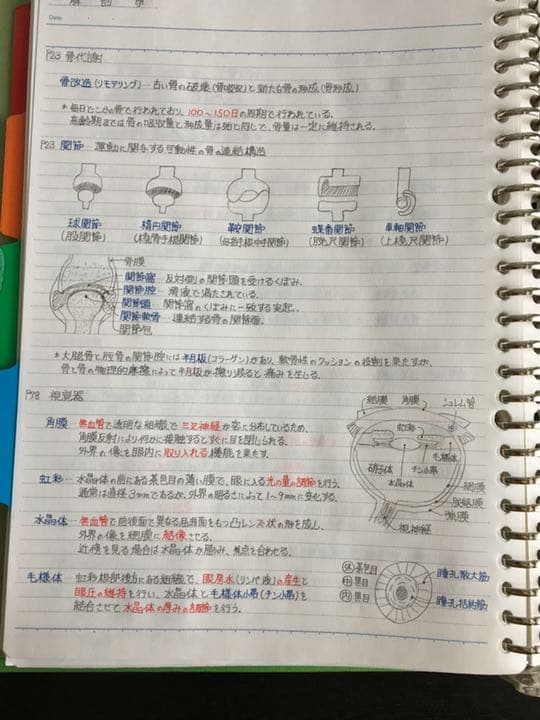 解剖学
Date
P23 骨代謝
骨改造(リモデリング)―古い骨の破壊(骨吸収)と新たな骨の形成(骨形成)
*毎日どこかの骨で行われており、100～150日の周期で行われている。
高齢期までは骨の吸収量と形成量は殆ど同じで、骨量は一定に維持される。
P23 関節―運動に関与する可動性の骨の連結構造
球関節 楕円関節 鞍関節 蝶番関節 車軸関節
(股関節) (橈骨手根関節) (母指手根中手関節) (腕尺関節) (上橈尺関節)
骨膜
関節窩 反対側の関節頭を受けるくぼみ.
関節腔 滑液で満たされている.
関節頭 関節窩のくぼみに一致する突起.
関節軟骨 連結する骨の関節面.
関節包
*大腿骨と脛骨の関節腔には半月板(コラーゲン)があり、軟骨性のクッションの役割を果たすが、
骨と骨の物理的摩擦によって半月板が擦り減ると痛みを生じる.
P78 視覚器
角膜―無血管で透明な組織で三叉神経が密に分布しているため、
角膜反射により何かに接触するとすぐに目を閉じられる.
外界の像を眼内に取り入れる機能を果たす.
虹彩―水晶体の前にある茶色目の薄い膜で、眼に入る光の量の調節を行う.
通常は直径3mmであるが、外界の明るさによって1～9mmに変化する.
水晶体―無血管で前後面で異なる屈曲面をもつ凸レンズ状の形を成し、
外界の像を網膜に結像させる.
近慢を見る場合は水晶体の膨み、焦点を合わせる.
毛様体―虹彩根部後方にある組織で、眼房水(リンパ液)の産生と
眼圧の維持を行い、水晶体と毛様体小帯(チン小帯)を
結合させて水晶体の厚みの調節を行う.
結膜 角膜 シュレム管
虹彩
毛様体
硝子体 チン小帯
水晶体
網膜
脈絡膜
強膜
視神経
外 茶色目
中 黒目
内 黒目
瞳孔散大筋
瞳孔括約筋